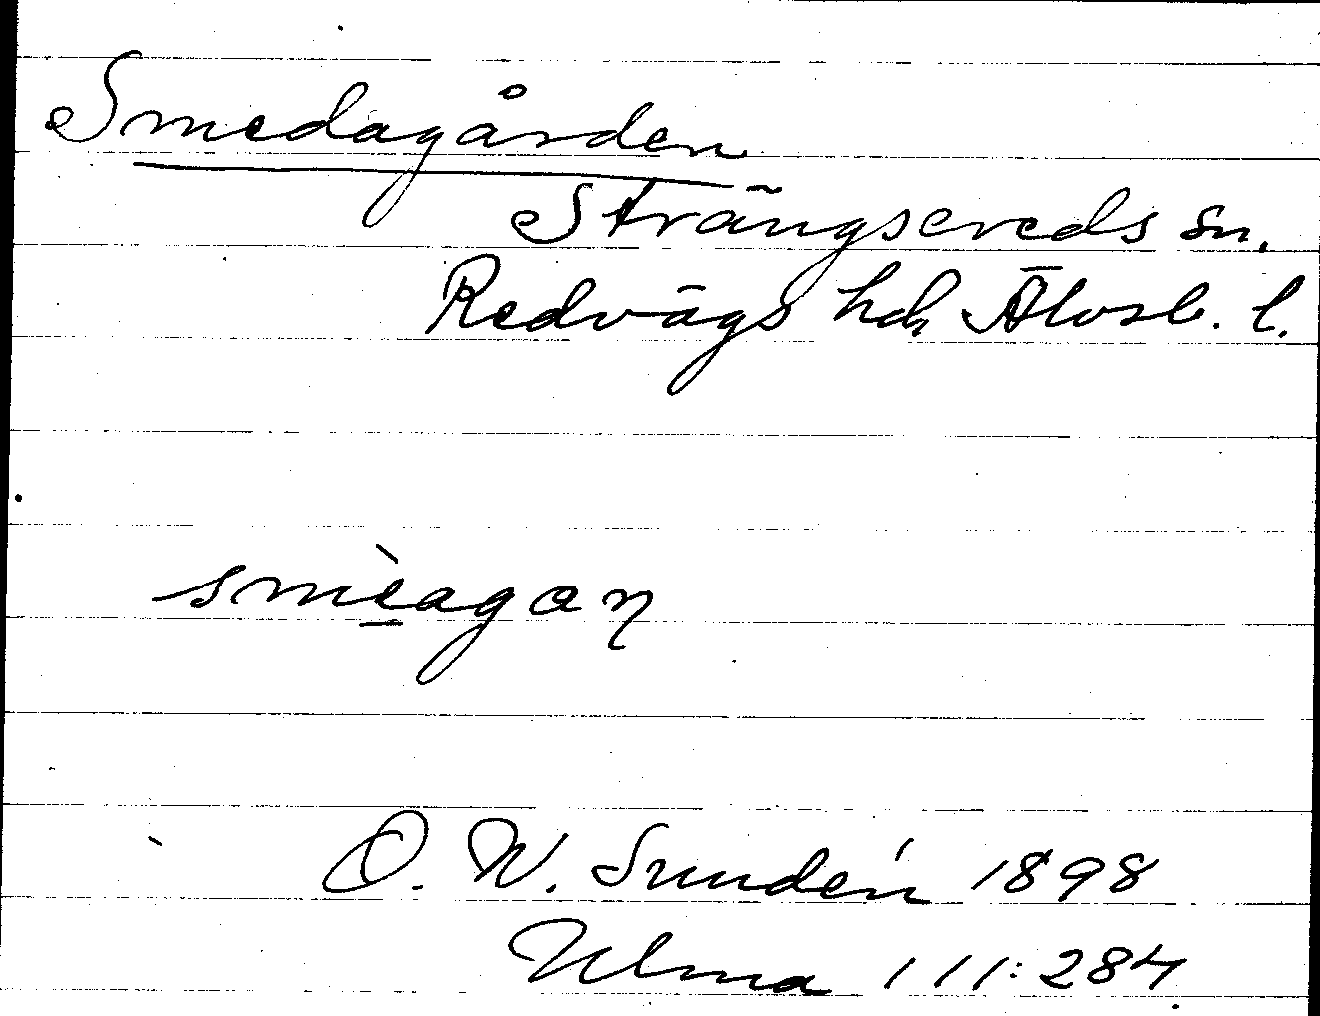 Smedagården
Strängsereds sn.
Redvägs hd Älvsb. l.
smèagaɳ
O. W. Sundén 1898
Ulma 111:284